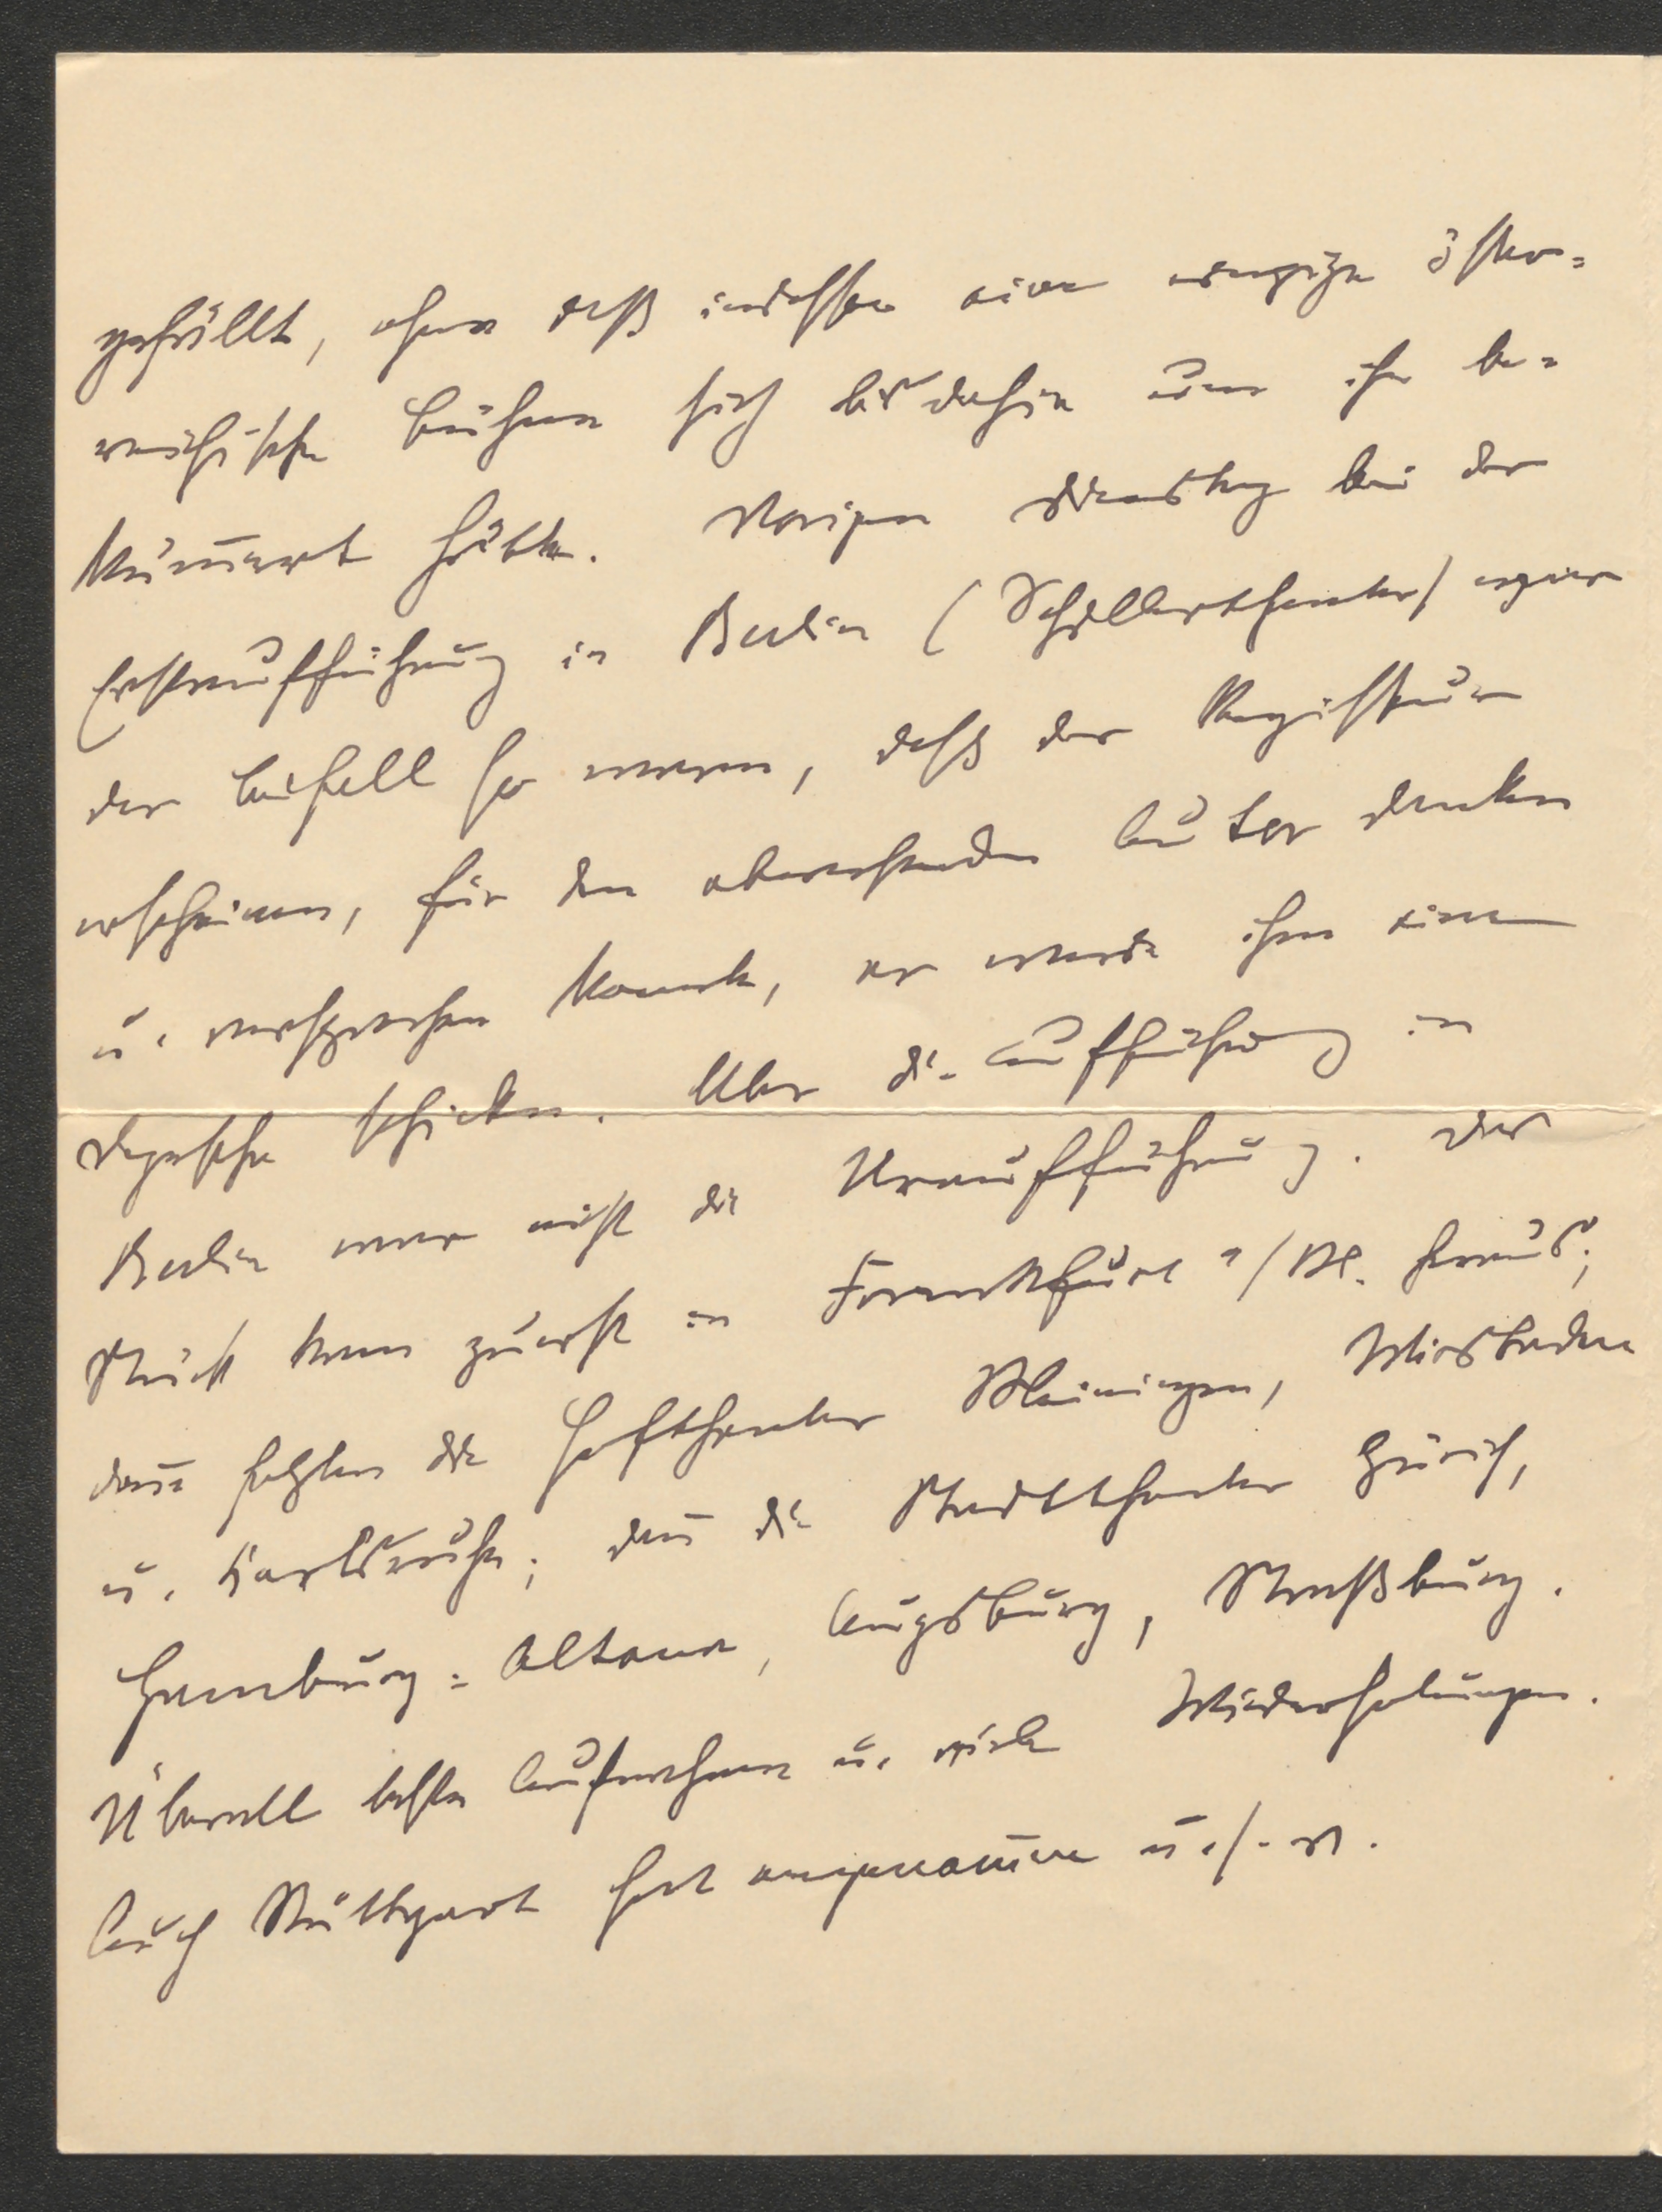 gefällt, ohne daß indessen eine einzige öster-
reichische Bühne sich bis dahin um ihn be-
kümert hätte. Vorigen Dienstag bei der
Erstaufführung in Berlin (Schillertheater) war
der Beifall so warm, daß der Regisseur
erscheinen, für den abwesenden Autor danken
u. versprechen konnte, er werde ihm eine
Depesche schicken. Aber die Aufführung in
Berlin war nicht die Uraufführung. Das
Stück kam zuerst in Frankfurt a/M. heraus;
dann folgten die Hoftheater Meiningen, Wiesbaden
u. Karlsruhe; dann die Stadttheater Zürich,
Hamburg-Altona, Augsburg, Straßburg.
Überall beste Aufnahme u. viele Wiederholungen.
Auch Stuttgart hat angenommen u. s. w.